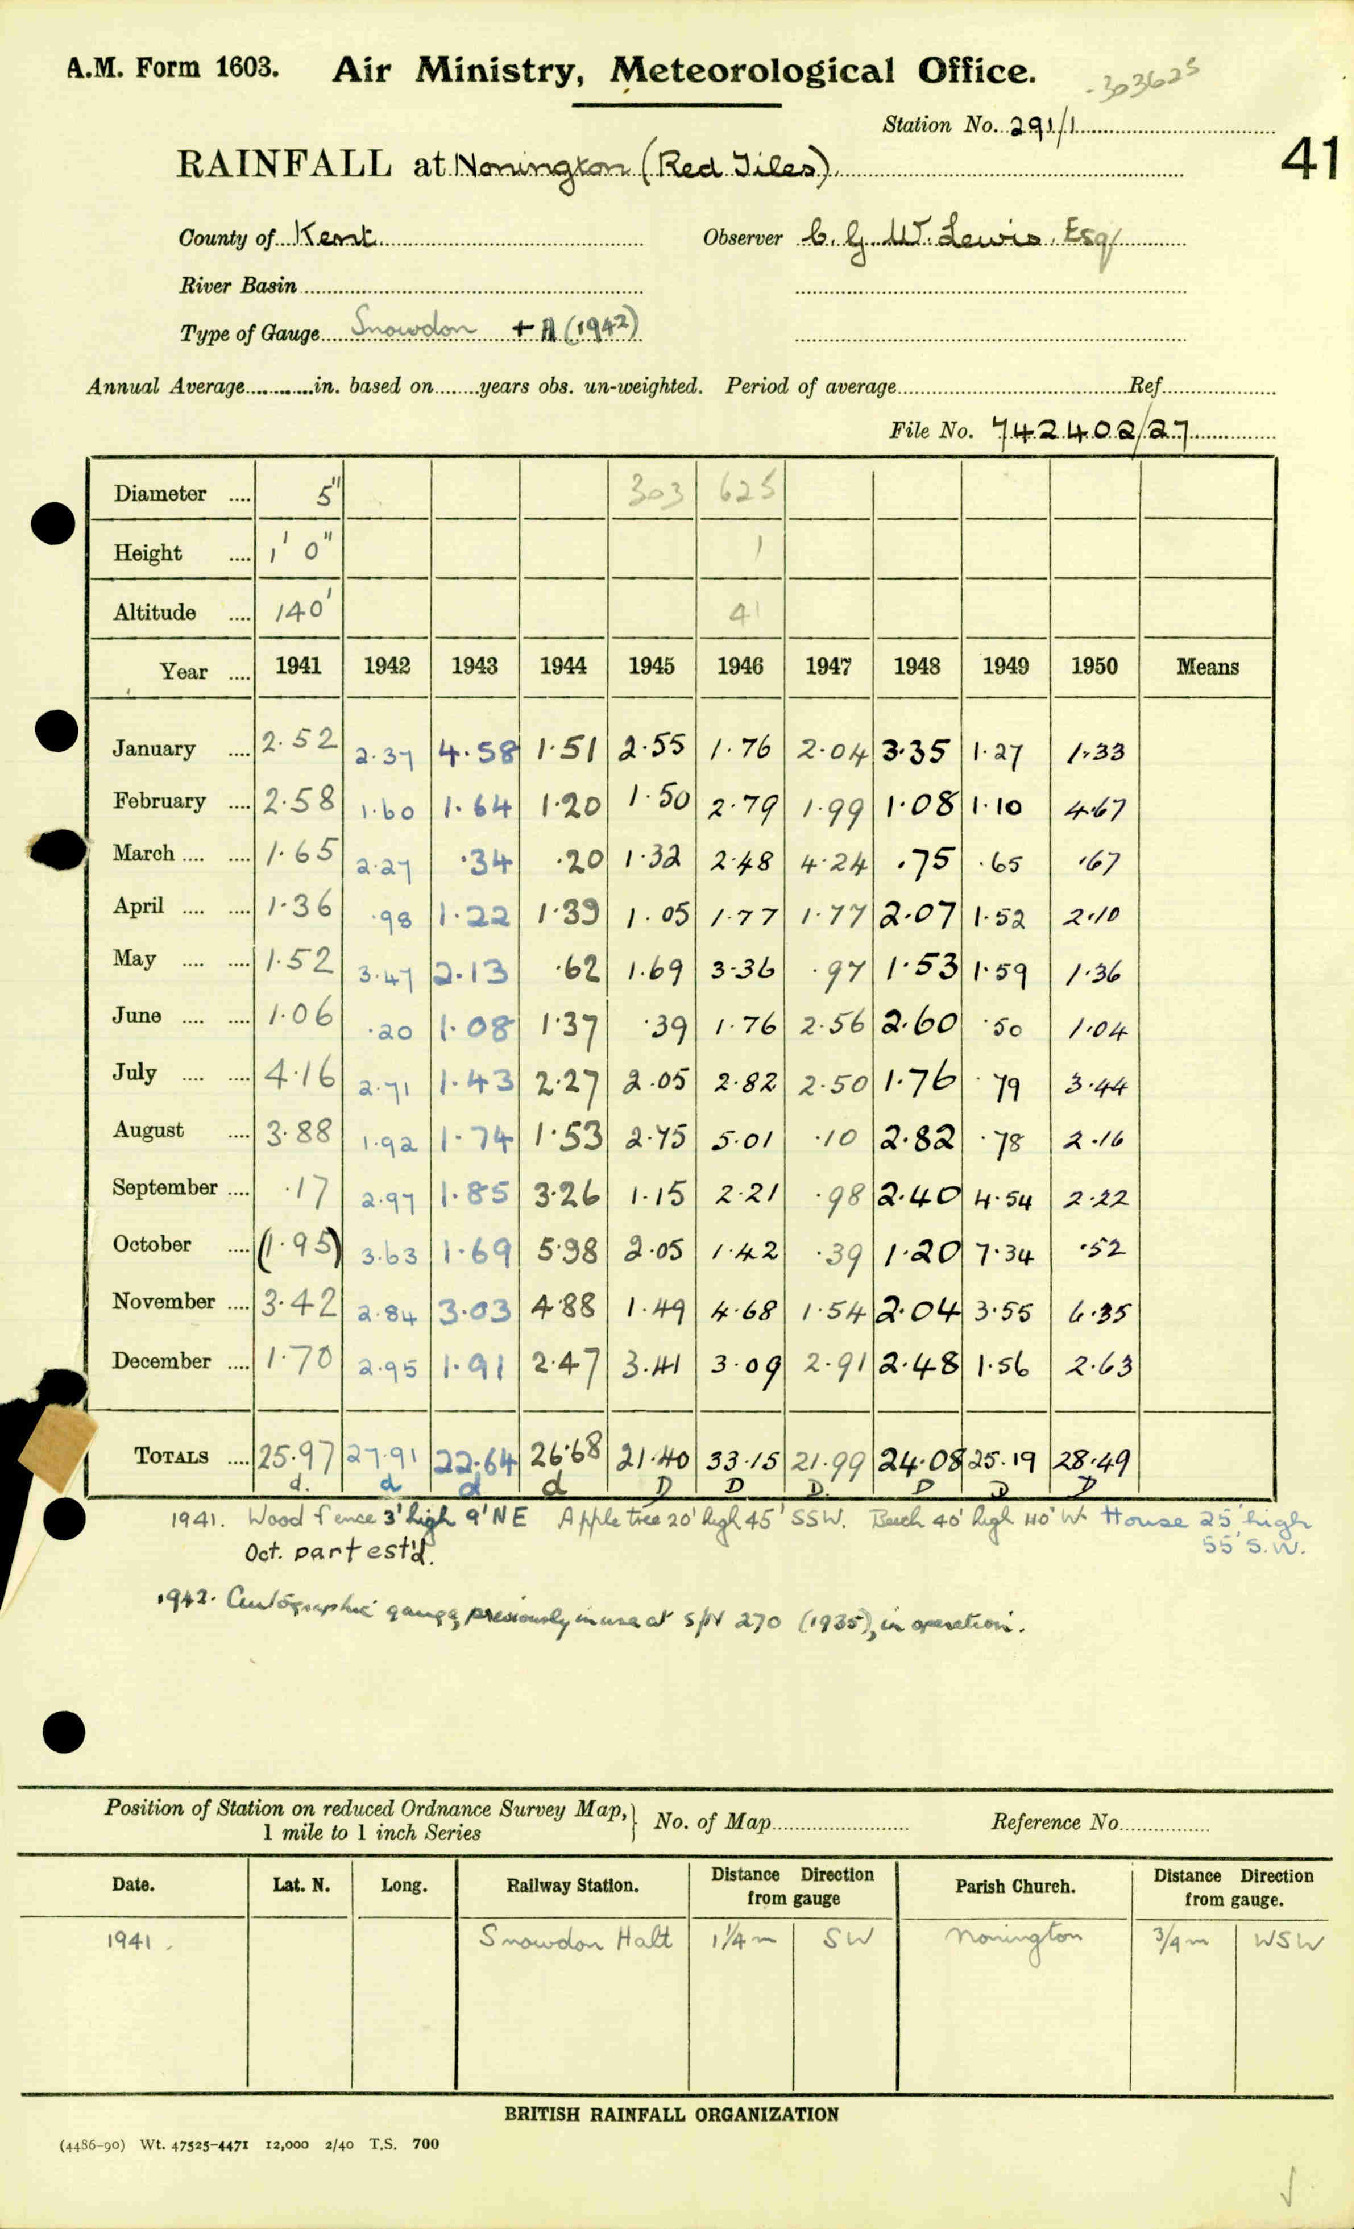 A.M. Form 1603. Air Ministry, Meteorological Office.
303625
Station No. 291/1
41
RAINFALL at Nonington (Red Tiles).
County of Kent Observer C. G. W. Lewis, Esq
River Basin
Type of Gauge Snowdon + A (1942)
Annual Average in. based on years obs. un-weighted. Period of average Ref
File No. 742402/27
Diameter .... 5" 303 625
Height .... 1' 0" 1
Altitude .... 140' 41
Year .... 1941 1942 1943 1944 1945 1946 1947 1948 1949 1950 Means
January .... 2.52 2.37 4.58 1.51 2.55 1.76 2.04 3.35 1.27 1.33
February .... 2.58 1.60 1.64 1.20 1.50 2.79 1.99 1.08 1.10 4.67
March .... .... 1.65 2.27 .34 .20 1.32 2.48 4.24 .75 .65 .67
April .... .... 1.36 .98 1.22 1.39 1.05 1.77 1.77 2.07 1.52 2.10
May .... .... 1.52 3.47 2.13 .62 1.69 3.36 .97 1.53 1.59 1.36
June .... .... 1.06 .20 1.08 1.37 .39 1.76 2.56 2.60 .50 1.04
July .... .... 4.16 2.71 1.43 2.27 2.05 2.82 2.50 1.76 .79 3.44
August .... 3.88 1.92 1.74 1.53 2.75 5.01 .10 2.82 .78 2.16
September .... .17 2.97 1.85 3.26 1.15 2.21 .98 2.40 4.54 2.22
October .... (1.95) 3.63 1.69 5.98 2.05 1.42 .39 1.20 7.34 .52
November .... 3.42 2.84 3.03 4.88 1.49 4.68 1.54 2.04 3.55 6.35
December .... 1.70 2.95 1.91 2.47 3.41 3.09 2.91 2.48 1.56 2.63
TOTALS .... 25.97 27.91 22.64 26.68 21.40 33.15 21.99 24.08 25.19 28.49
d. d d d D D D. D D D
1941. Wood fence 3' high 9' NE Apple tree 20' high 45' SSW. Beech 40' high 40' W. House 25' high
55' S.W.
Oct. part est'd.
1942. Autographic gauge, previously in use at S/N 270 (1935), in operation.
Position of Station on reduced Ordnance Survey Map,} No. of Map Reference No.
1 mile to 1 inch Series
Date. Lat. N. Long. Railway Station. Distance Direction from gauge Parish Church. Distance Direction from gauge.
1941. Snowdon Halt 1¼ m SW Nonington ¾ m WSW
BRITISH RAINFALL ORGANIZATION
(4486-90) Wt. 47525-4471 12,000 2/40 T.S. 700